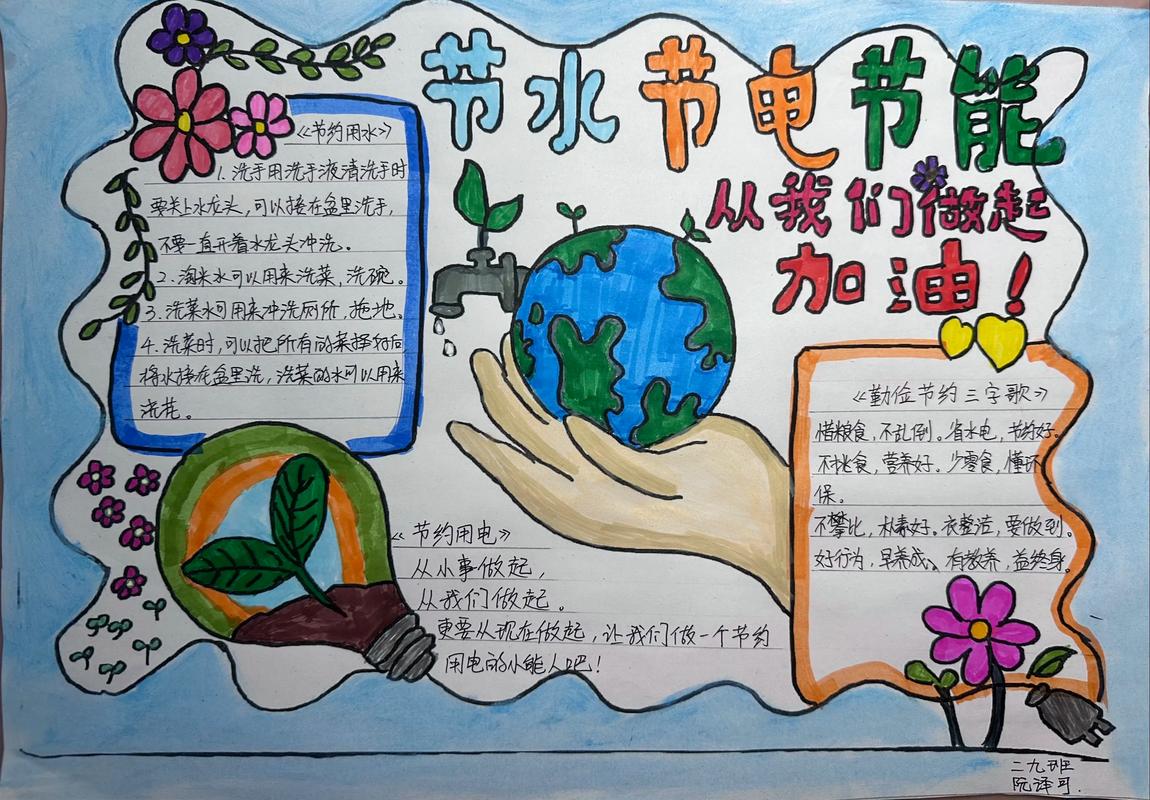 节水节电节能
从我们做起
加油！
《节约用水》
1.洗手用洗手液清洗手时
要关上水龙头，可以接在盆里洗手，
不要一直开着水龙头冲洗。
2.淘米水可以用来洗菜，洗碗。
3.洗菜水可用来冲洗厕所，拖地。
4.洗菜时，可以把所有的菜择好后
将水接在盆里洗，洗菜的水可以用来
浇花。
《节约用电》
从小事做起，
从我们做起。
更要从现在做起，让我们做一个节约
用电的小能人吧！
《勤俭节约三字歌》
惜粮食，不乱倒。省水电，节约好。
不挑食，营养好。少零食，懂环
保。
不攀比，朴素好。衣整洁，要做到。
好行为，早养成、有教养，益终身。
二九班
阮译可.